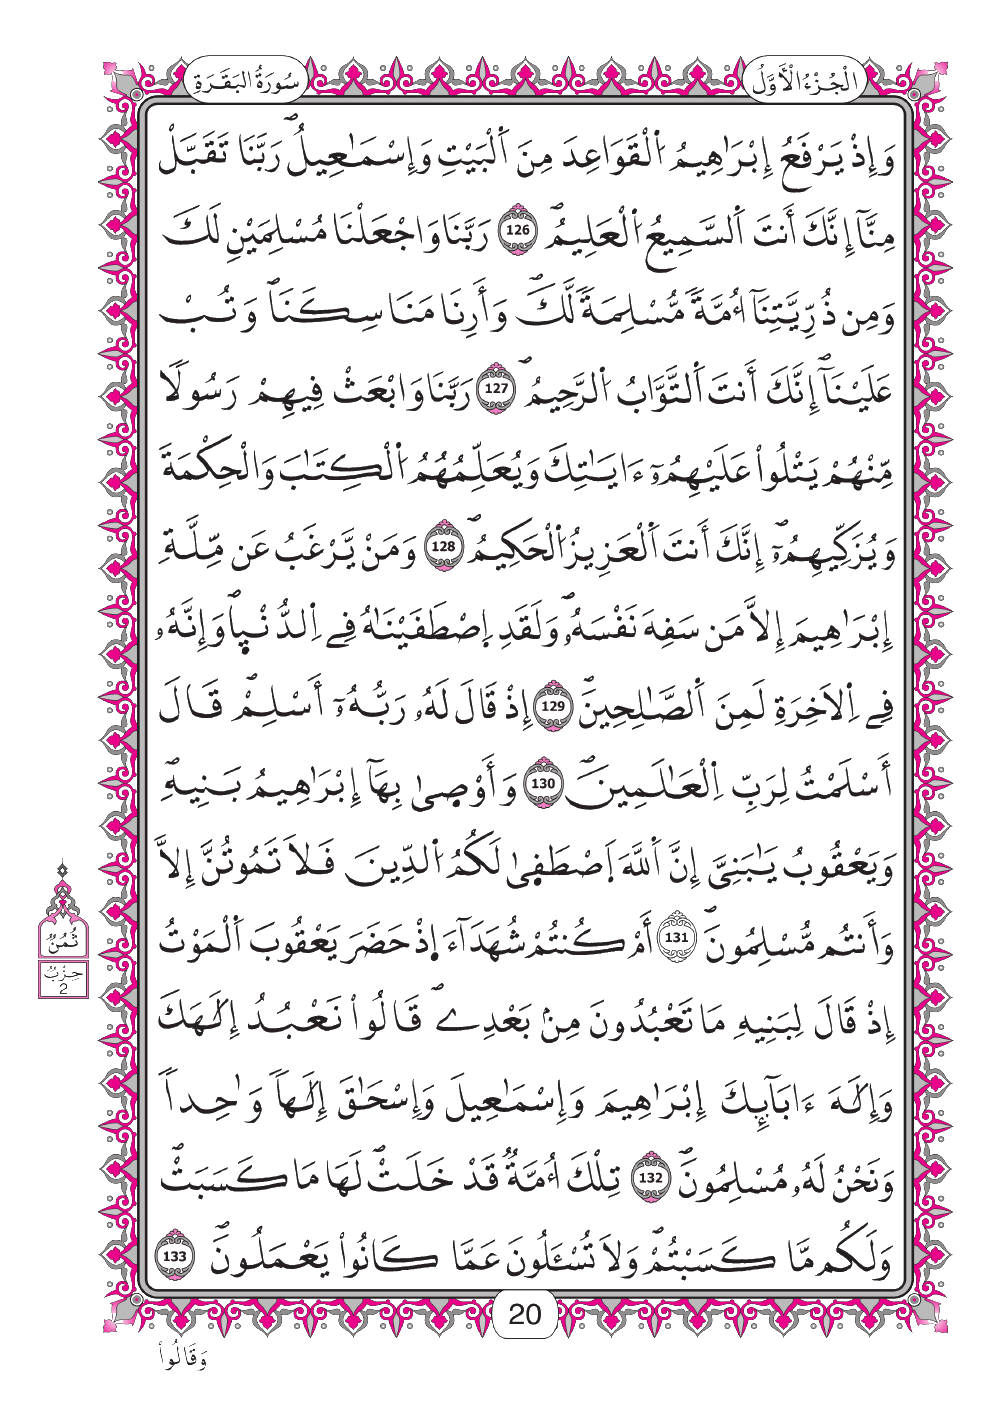 الْجُزْءُ الْأَوَّلُ
سُورَةُ البَقَرَةِ
وَإِذْ يَرْفَعُ إِبْرَٰهِيمُ اُ۬لْقَوَاعِدَ مِنَ اَ۬لْبَيْتِ وَإِسْمَٰعِيلُۖ رَبَّنَا تَقَبَّلْ
مِنَّآ إِنَّكَ أَنتَ اَ۬لسَّمِيعُ اُ۬لْعَلِيمُۖ 126 رَبَّنَا وَاجْعَلْنَا مُسْلِمَيْنِ لَكَ
وَمِن ذُرِّيَّتِنَآ أُمَّةٗ مُّسْلِمَةٗ لَّكَۖ وَأَرِنَا مَنَاسِكَنَاۖ وَتُبْ
عَلَيْنَآۖ إِنَّكَ أَنتَ اَ۬لتَّوَّابُ اُ۬لرَّحِيمُۖ 127 رَبَّنَا وَابْعَثْ فِيهِمْ رَسُولٗا
مِّنْهُمْ يَتْلُواْ عَلَيْهِمُۥٓ ءَايَٰتِكَ وَيُعَلِّمُهُمُ اُ۬لْكِتَٰبَ وَالْحِكْمَةَ
وَيُزَكِّيهِمُۥٓۖ إِنَّكَ أَنتَ اَ۬لْعَزِيزُ اُ۬لْحَكِيمُۖ 128 وَمَنْ يَّرْغَبُ عَن مِّلَّةِ
إِبْرَٰهِيمَ إِلَّا مَن سَفِهَ نَفْسَهُۥۖ وَلَقَدِ اِ۪صْطَفَيْنَٰهُ فِے اِ۬لدُّنْي۪اۖ وَإِنَّهُۥ
فِے اِ۬لَاخِرَةِ لَمِنَ اَ۬لصَّٰلِحِينَۖ 129 إِذْ قَالَ لَهُۥ رَبُّهُۥٓ أَسْلِمْۖ قَالَ
أَسْلَمْتُ لِرَبِّ اِ۬لْعَٰلَمِينَۖ 130 وَأَوْص۪يٰ بِهَآ إِبْرَٰهِيمُ بَنِيهِۖ
وَيَعْقُوبُ يَٰبَنِيَّ إِنَّ اَ۬للَّهَ اَ۪صْطَف۪يٰ لَكُمُ اُ۬لدِّينَ فَلَا تَمُوتُنَّ إِلَّا
وَأَنتُم مُّسْلِمُونَۖ 131 أَمْ كُنتُمْ شُهَدَآءَ ا۪ذْ حَضَرَ يَعْقُوبَ اَ۬لْمَوْتُ
إِذْ قَالَ لِبَنِيهِ مَا تَعْبُدُونَ مِنۢ بَعْدِےۖ قَالُواْ نَعْبُدُ إِلَٰهَكَ
وَإِلَٰهَ ءَابَآئِكَ إِبْرَٰهِيمَ وَإِسْمَٰعِيلَ وَإِسْحَٰقَ إِلَٰهاٗ وَٰحِداٗ
وَنَحْنُ لَهُۥ مُسْلِمُونَۖ 132 تِلْكَ أُمَّةٞ قَدْ خَلَتْۖ لَهَا مَا كَسَبَتْۖ
وَلَكُم مَّا كَسَبْتُمْۖ وَلَا تُسْـَٔلُونَ عَمَّا كَانُواْ يَعْمَلُونَۖ 133
ثُمُنُ
حِزْبُ
2
20
وَقَالُواْ